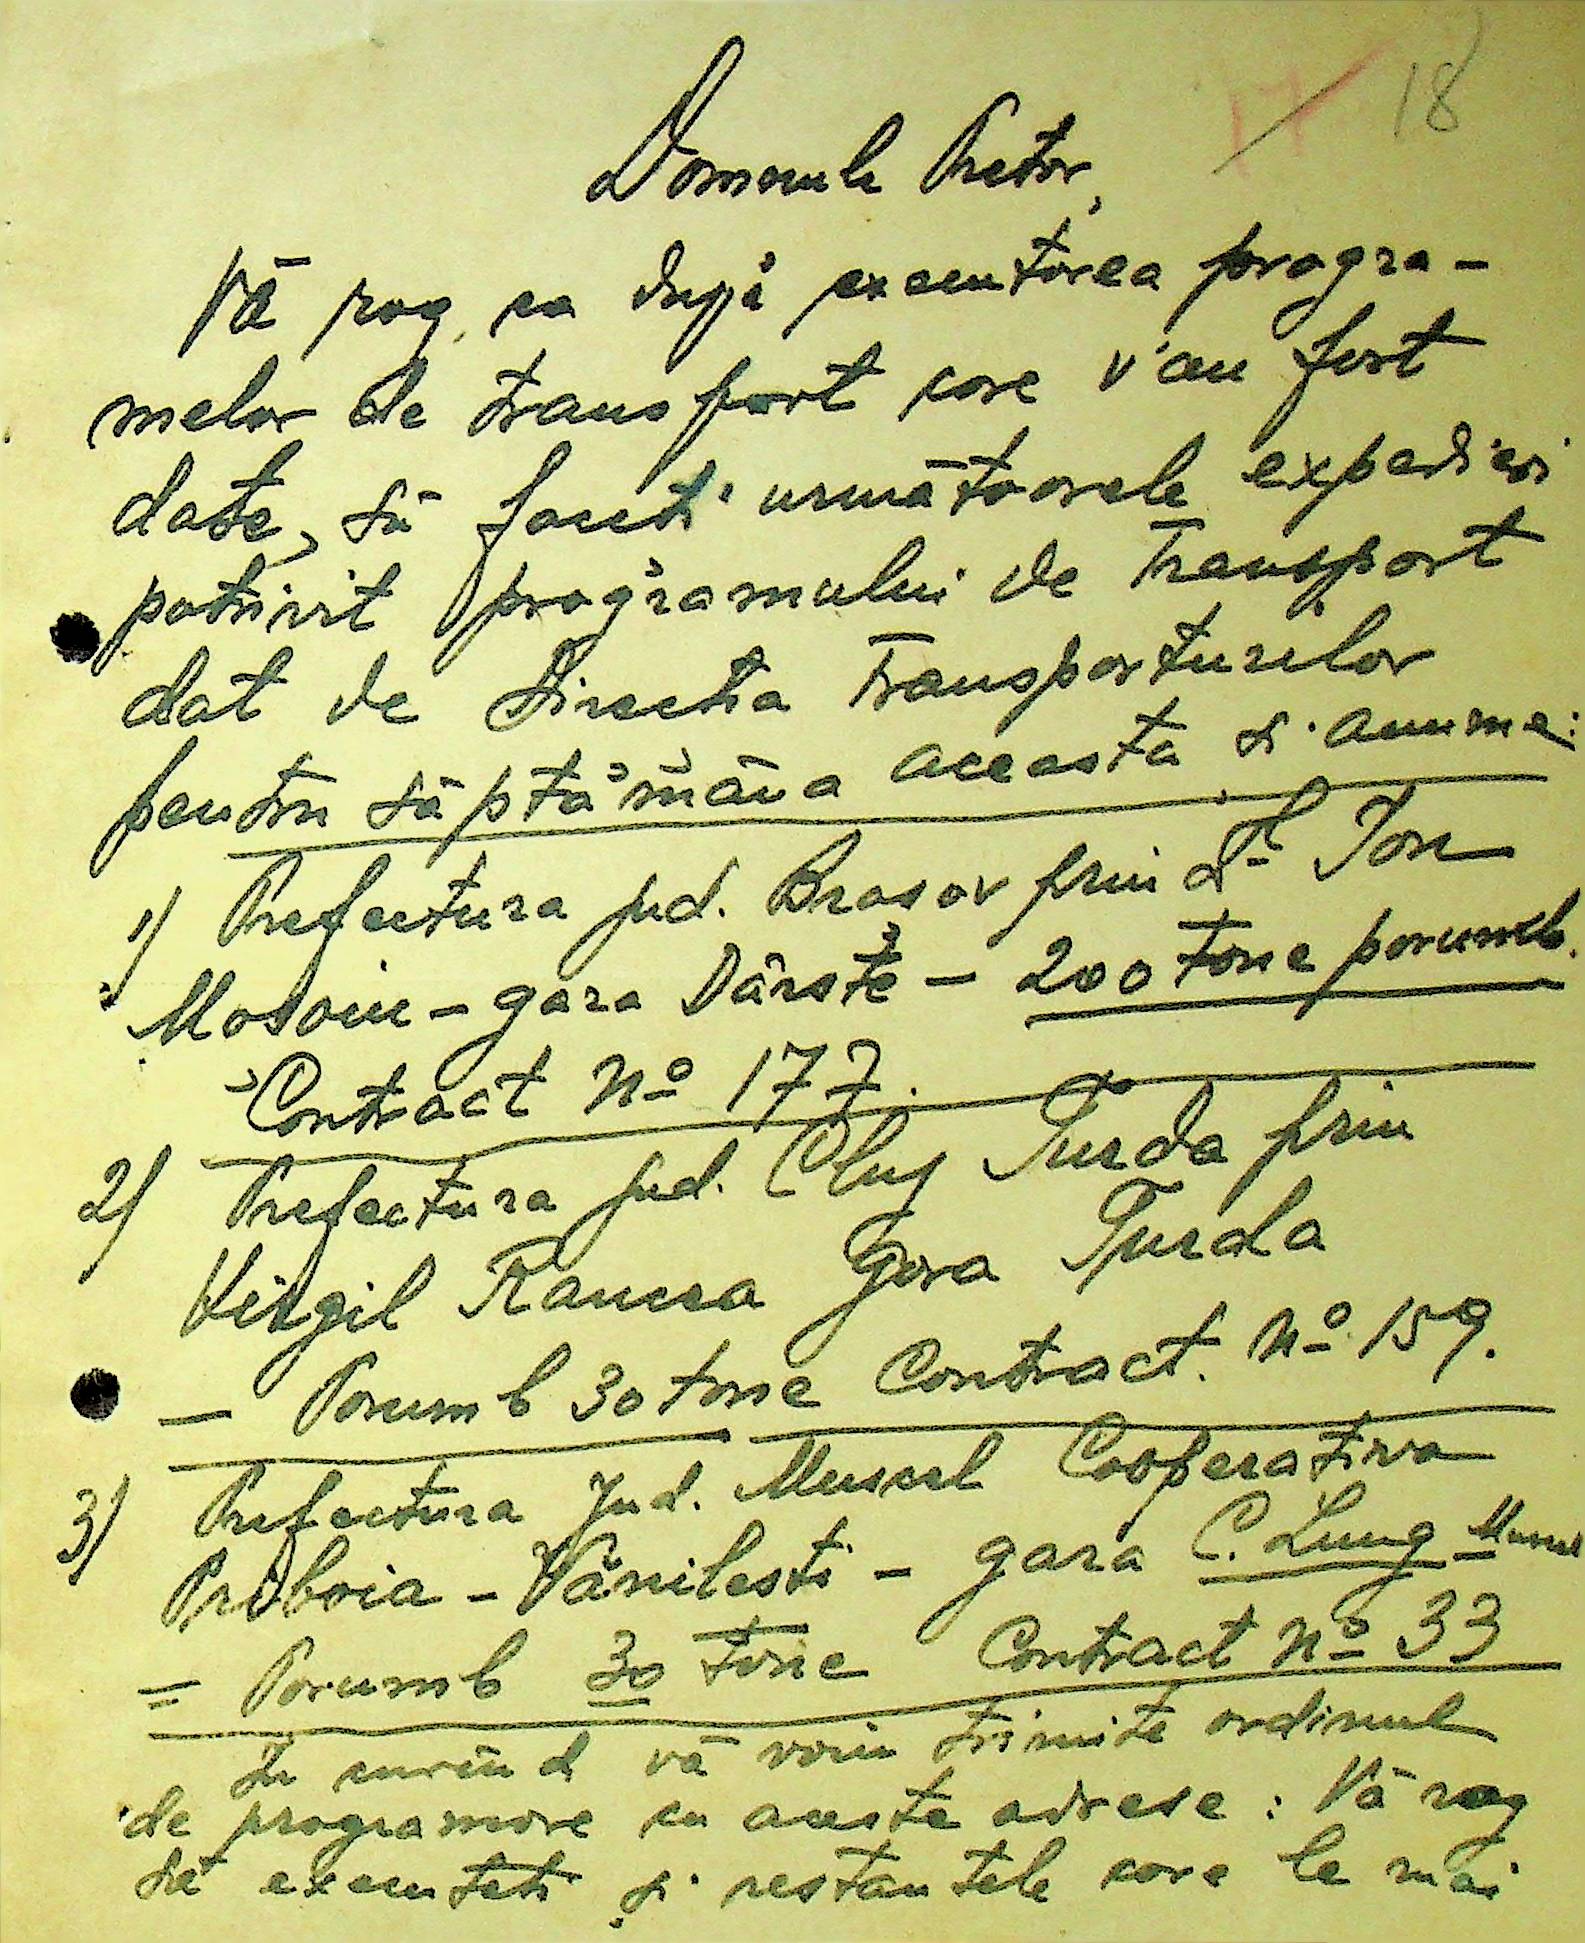 17 18
Domnule Pretor,
Vă rog, ca după executarea progra-
melor de transport care v'au fost
date, să faceți următoarele expedieri
potrivit programului de Transport
dat de Direcția Transporturilor
pentru săptămâna aceasta și anume:
1) Prefectura jud. Brașov prin dl Ion
Mosoiu - gara Dârste - 200 tone porumb.
Contract No 177.
2) Prefectura jud. Cluj Turda prin
Virgil Gara Turda
- Porumb 30 tone Contract. No 159.
3) Prefectura Jud. Muscel Cooperativa
Priboia - Vănilești - gara C. Lung - Muscel
= Porumb 30 tone Contract No 33
In curând vă voiu trimite ordinul
de programare cu aceste adrese: Vă rog
să executați și restanțele care le mai